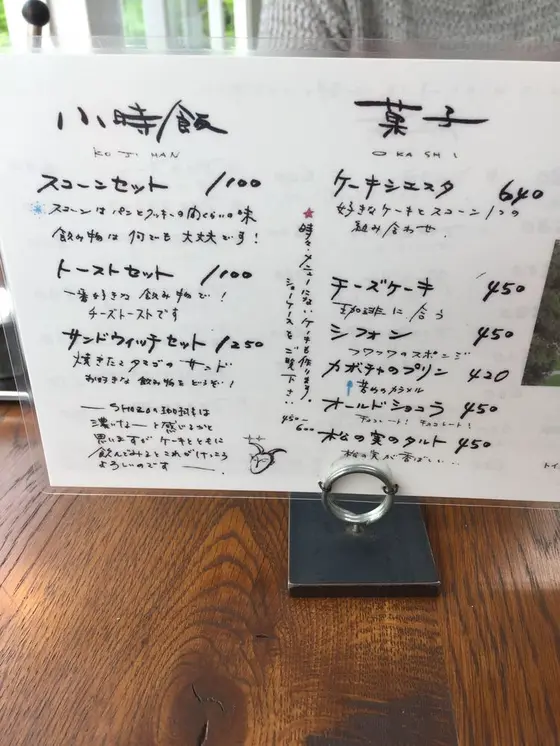 小時飯
KOJIHAN
スコーンセット 1100
スコーンはパンとクッキーの間くらいの味
飲み物は何でも大丈夫です!
トーストセット 1100
一番好きな飲み物で!
チーズトーストです
サンドウィッチセット 1250
焼きたてタマゴのサンド
お好きな飲み物をどうぞ!
SHOZO 珈琲は
濃いなーと感じるかと
思いますがケーキとともに
飲んでみるとこれがけっこう
よろしいのです
★時々メニューにないケーキも作ります。
ショーケースをご覧下さい
450-
600
菓子
OKASHI
ケーキシエスタ 640
好きなケーキとスコーン1つの
組み合わせ
チーズケーキ 450
珈琲に合う
シフォン 450
フワフワのスポンジ
カボチャのプリン 420
苦めのカラメル
オールドショコラ 450
チョコレート!チョコレート!
松の実のタルト 450
松の実が香ばしい...
トイ